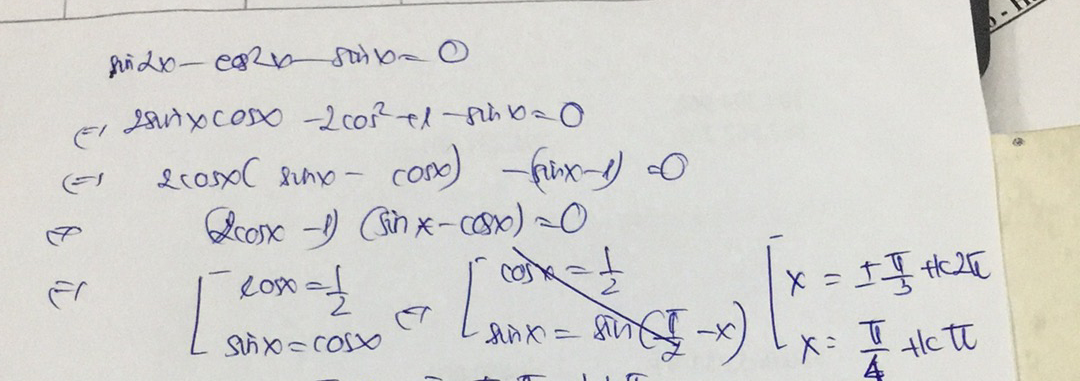 sin2x - cos2x - sinx = 0
⇔ 2sinxcosx - 2cos² + 1 - sinx = 0
⇔ 2cosx( sinx - cosx) - (sinx - 1) = 0
⇔ (2cosx - 1) (sinx - cosx) = 0
⇔ [ cosx = 1/2 ⇔ [ cosx = 1/2 [ x = ± π/3 + k2π
sinx = cosx sinx = sin(π/2 - x) x = π/4 + kπ